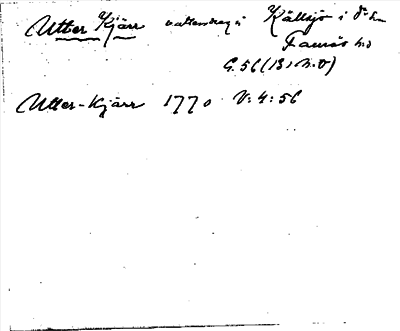 Utter Kjärr vattendrag i Källsjö i
Famnäs hd
G. 56 (13, N.O)
Utter-Kjärr 1770 V:4:56